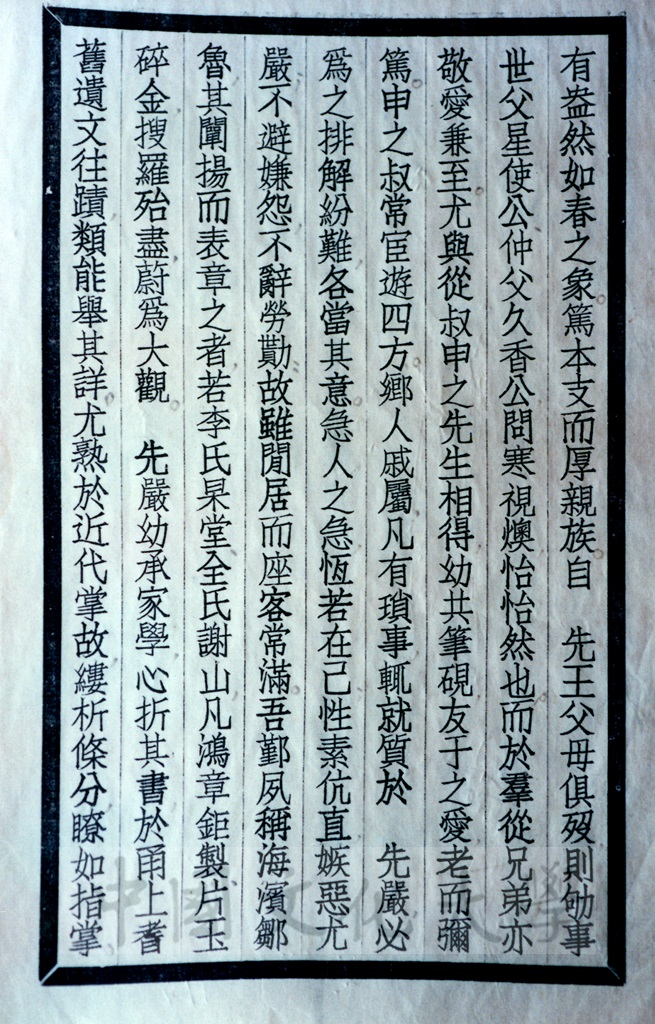 有盎然如春之象篤本支而厚親族自　先王父母俱歿則劬事
世父星使公仲父久香公問寒視燠怡怡然也而於羣從兄弟亦
敬愛兼至尤與從叔申之先生相得幼共筆硯友于之愛老而彌
篤申之叔常宦遊四方鄉人戚屬凡有瑣事輒就質於　先嚴必
爲之排解紛難各當其意急人之急恆若在己性素伉直嫉惡尤
嚴不避嫌怨不辭勞勩故雖閒居而座客常滿吾鄞夙稱海濱鄒
魯其闡揚而表章之者若李氏杲堂全氏謝山凡鴻章鉅製片玉
碎金搜羅殆盡蔚爲大觀　先嚴幼承家學心折其書於甬上耆
舊遺文往蹟類能舉其詳尤熟於近代掌故縷析條分瞭如指掌
中國文化大學